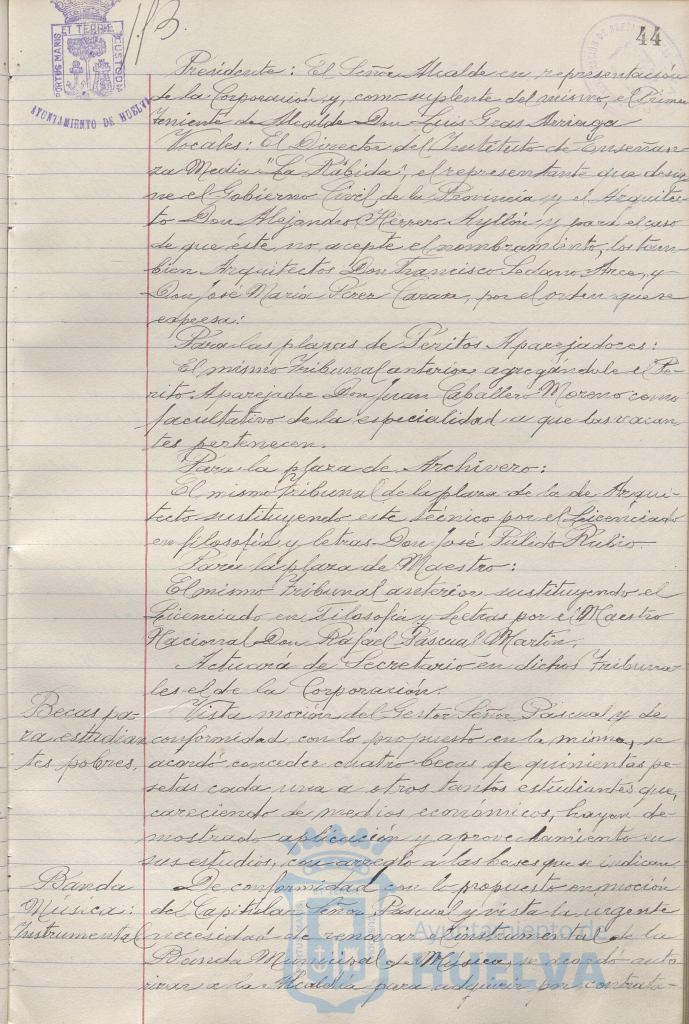 PORTUS MARIS ET TERRE CUSTODIA
AYUNTAMIENTO DE HUELVA
113
44
Presidente: El Señor Alcalde en representación
de la Corporación y, como suplente del mismo, el Primer
Teniente de Alcalde Don Luis Gras Arriaga
Vocales: El Director del Instituto de Enseñan-
za Media "La Rábida", el representante que desig-
ne el Gobierno Civil de la Provincia y el Arquitec-
to Don Alejandro Herrero Ayllón y para el caso
de que éste no acepte el nombramiento, los tam-
bien Arquitectos Don Francisco Sedano Arce, y
Don José María Pérez Carasa, por el orden que se
expresa:
Para las plazas de Peritos Aparejadores:
El mismo Tribunal anterior agregándole el Pe-
rito Aparejador Don Juan Caballero Moreno como
facultativo de la especialidad a que las vacan-
tes pertenecen.
Para la plaza de Archivero:
El mismo Tribunal de la plaza de la de Arqui-
tecto sustituyendo este técnico por el Licenciado
en filosofía y letras Don José Pulido Rubio.
Para la plaza de Maestro:
El mismo Tribunal anterior sustituyendo el
Licenciado en Filosofía y Letras por el Maestro
Nacional Don Rafael Pascual Martín.
Actuará de Secretario en dichos Tribuna-
les el de la Corporación.
Becas pa-
ra estudian
tes pobres.
Vista moción del Gestor Señor Pascual y de
conformidad con lo propuesto en la misma, se
acordó conceder cuatro becas de quinientas pe-
setas cada una a otros tantos estudiantes que,
careciendo de medios económicos, hayan de-
mostrado aplicación y aprovechamiento en
sus estudios, con arreglo a las bases que se indican:
Banda
Música:
Instrumental
De conformidad con lo propuesto en moción
del Capitular Señor Pascual y vista la urgente
necesidad de renovar el instrumental de la
Banda Municipal de Música, se acordó auto-
rizar a la Alcaldía para adquirir por contrata-
Ayuntamiento de
HUELVA